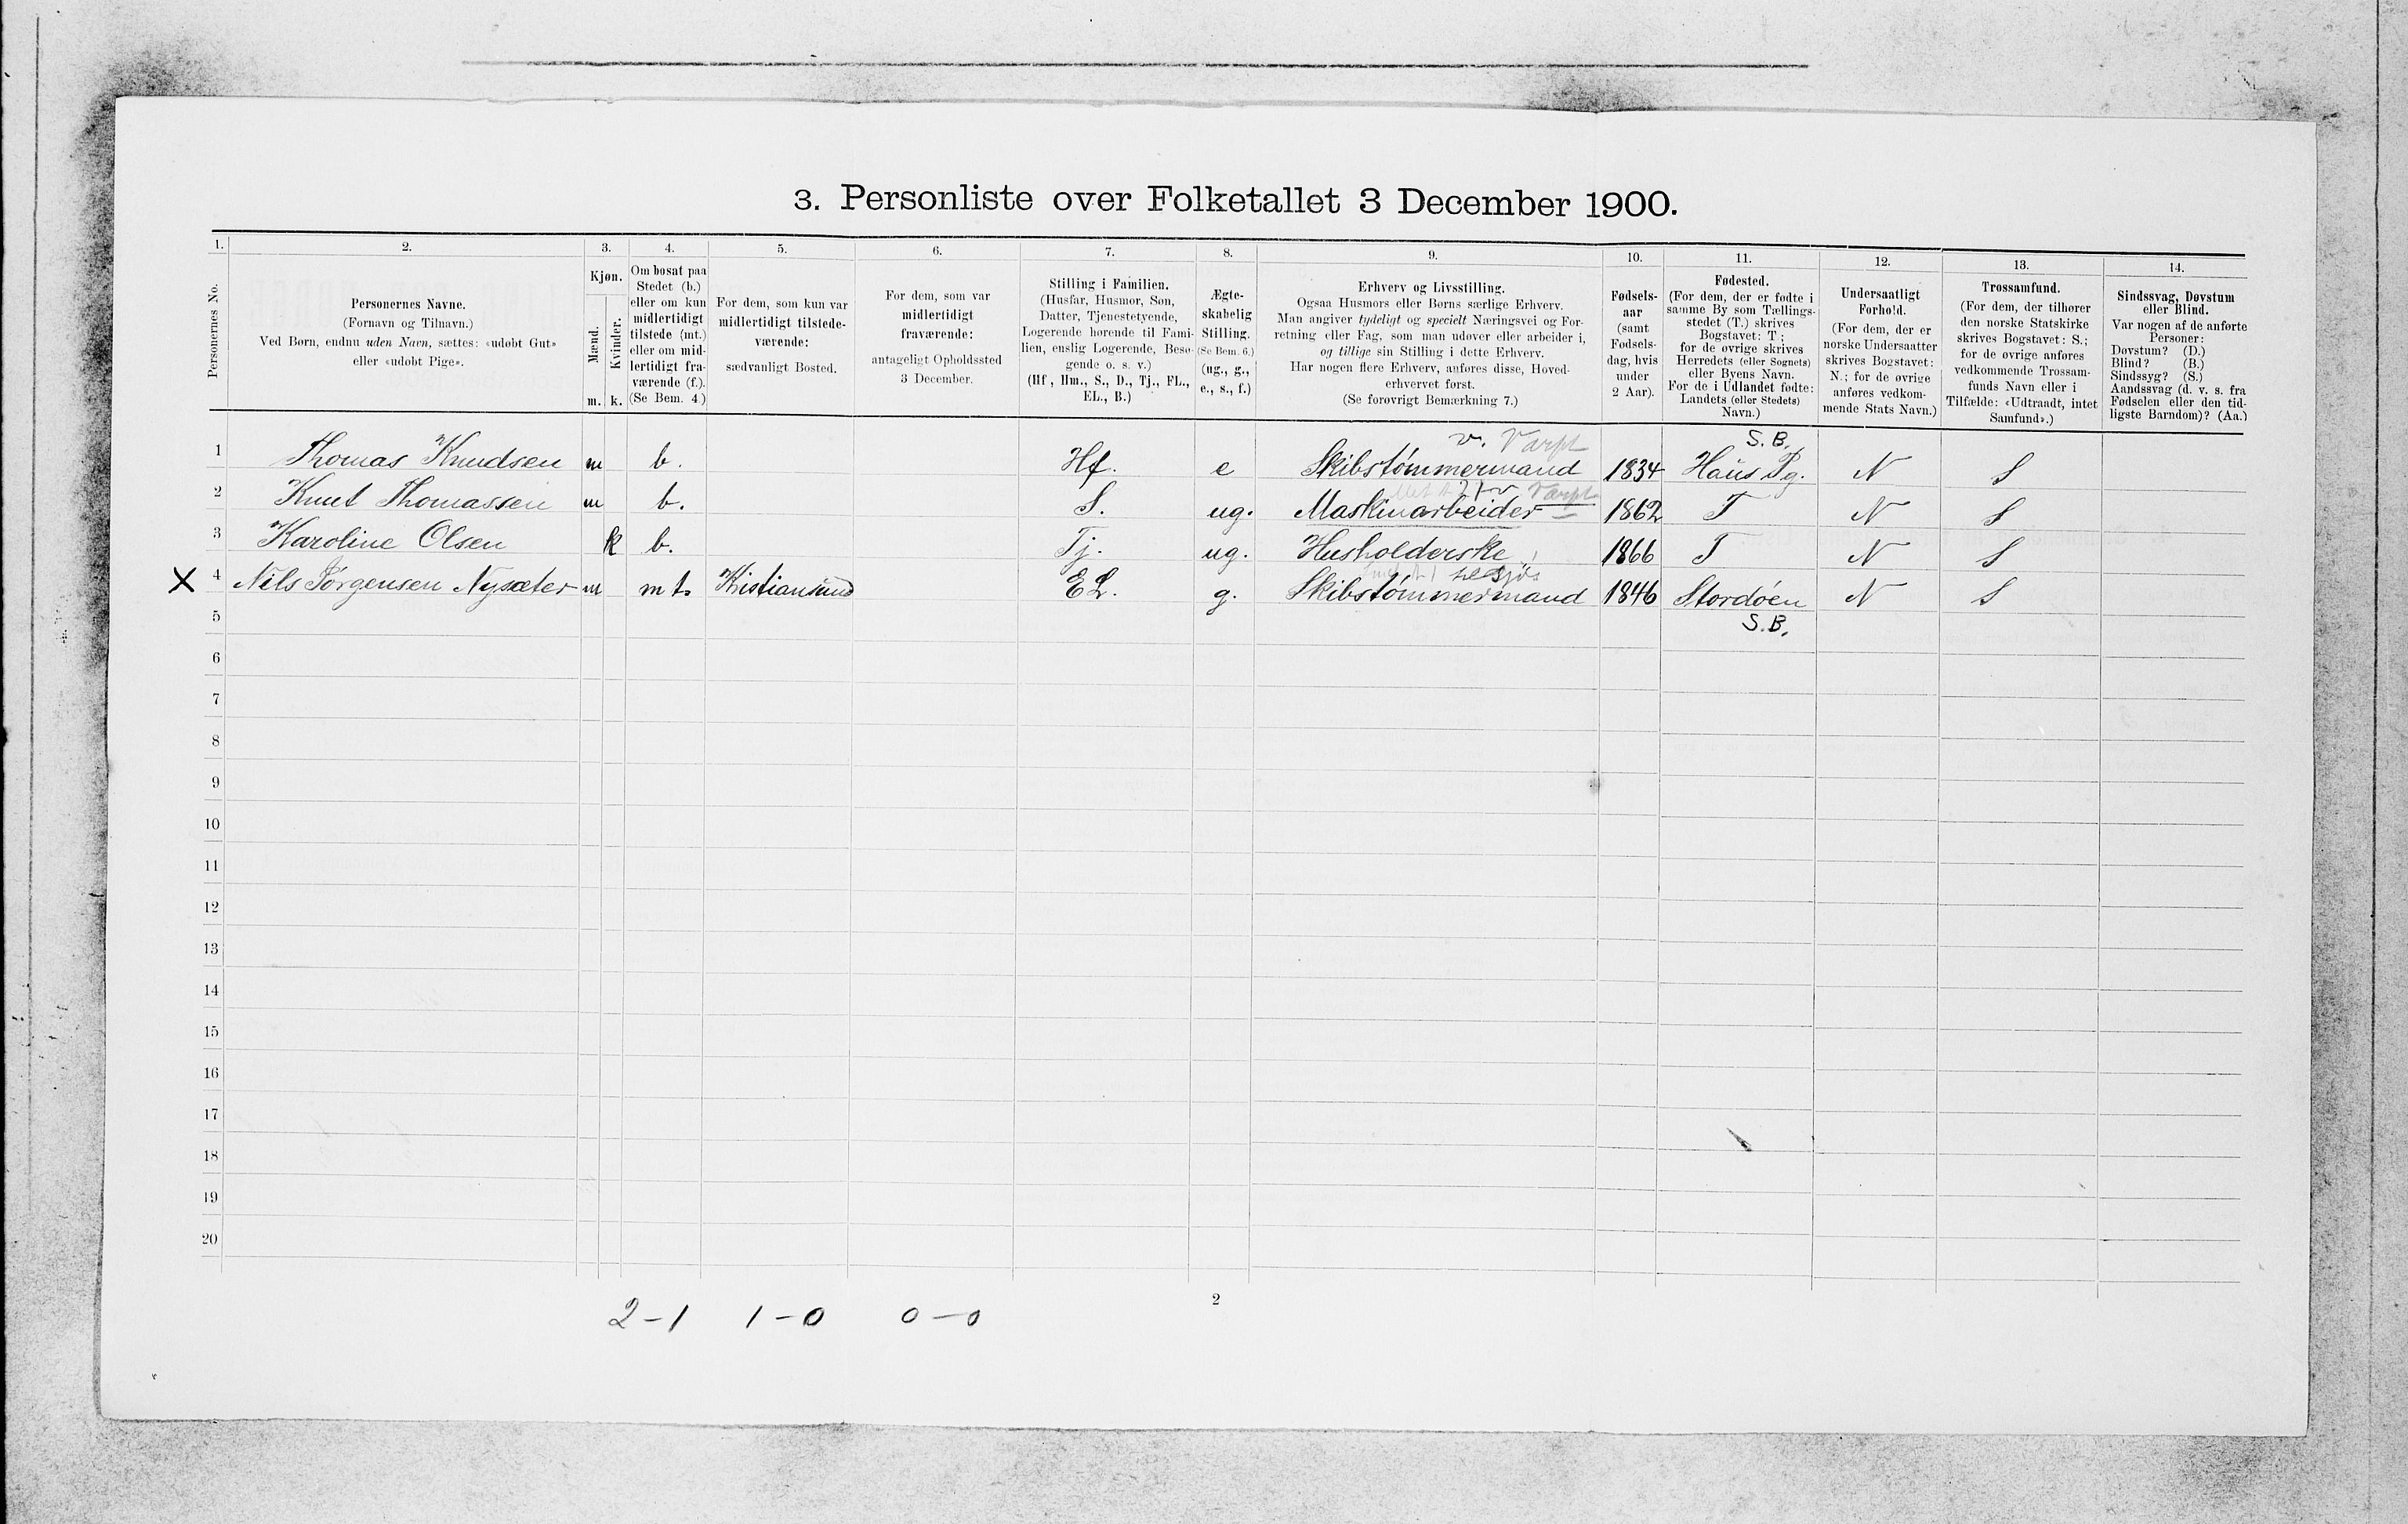 3. Personliste over Folketallet 3 December 1900.
1. 2. 3. 4. 5. 6. 7. 8. 9. 10. 11. 12. 13. 14.
Personernes No.
Personernes Navne.
(Fornavn og Tilnavn.)
Ved Børn, endnu uden Navn, sættes: «udøbt Gut»
eller «udøbt Pige».
Kjøn.
Mænd.
Kvinder.
m. k.
Om bosat paa
Stedet (b.)
eller om kun
midlertidigt
tilstede (mt.)
eller om mid-
lertidigt fra-
værende (f.).
(Se Bem. 4.)
For dem, som kun var
midlertidigt tilstede-
værende:
sædvanligt Bosted.
For dem, som var
midlertidigt
fraværende:
antageligt Opholdssted
3 December.
Stilling i Familien.
(Husfar, Husmor, Søn,
Datter, Tjenestetyende,
Logerende hørende til Fami-
lien, enslig Logerende, Besø-
gende o. s. v.)
(Hf., Hm., S., D., Tj., FL.,
EL., B.)
Ægte-
skabelig
Stilling.
(Se Bem. 6.)
(ug., g.,
e., s., f.)
Erhverv og Livsstilling.
Ogsaa Husmors eller Børns særlige Erhverv.
Man angiver tydeligt og specielt Næringsvei og For-
retning eller Fag, som man udøver eller arbeider i,
og tillige sin Stilling i dette Erhverv.
Har nogen flere Erhverv, anføres disse, Hoved-
erhvervet først.
(Se forøvrigt Bemærkning 7.)
Fødsels-
aar
(samt
Fødsels-
dag, hvis
under
2 Aar).
Fødested.
(For dem, der er fødte i
samme By som Tællings-
stedet (T.) skrives
Bogstavet: T;
for de øvrige skrives
Herredets (eller Sognets)
eller Byens Navn.
For de i Udlandet fødte:
Landets (eller Stedets)
Navn.)
Undersaatligt
Forhold.
(For dem, der er
norske Undersaatter
skrives Bogstavet:
N.; for de øvrige
anføres vedkom-
mende Stats Navn.)
Trossamfund.
(For dem, der tilhører
den norske Statskirke
skrives Bogstavet: S.;
for de øvrige anføres
vedkommende Trossam-
funds Navn eller i
Tilfælde: «Udtraadt, intet
Samfund».)
Sindssvag, Døvstum
eller Blind.
Var nogen af de anførte
Personer:
Døvstum? (D.)
Blind? (B.)
Sindssyg? (S.)
Aandssvag (d. v. s. fra
Fødselen eller den tid-
ligste Barndom)? (Aa.)
v. Varft S. B.
1 Thomas Knudsen m b. Hf. e Skibstømmermand 1834 Haus Pg. N S
v Varft
2 Knut Thomassen m b. S. ug. Maskinarbeider 1862 T N S
3 Karoline Olsen k b. Tj. ug. Husholderske 1866 T N S
tilsjøs
X 4 Nils Jørgensen Nysæter m mt. Kristiansund EL. g. Skibstømmermand 1846 Stordøen N S
5 S. B.
6
7
8
9
10
11
12
13
14
15
16
17
18
19
20
2
2-1 1-0 0-0